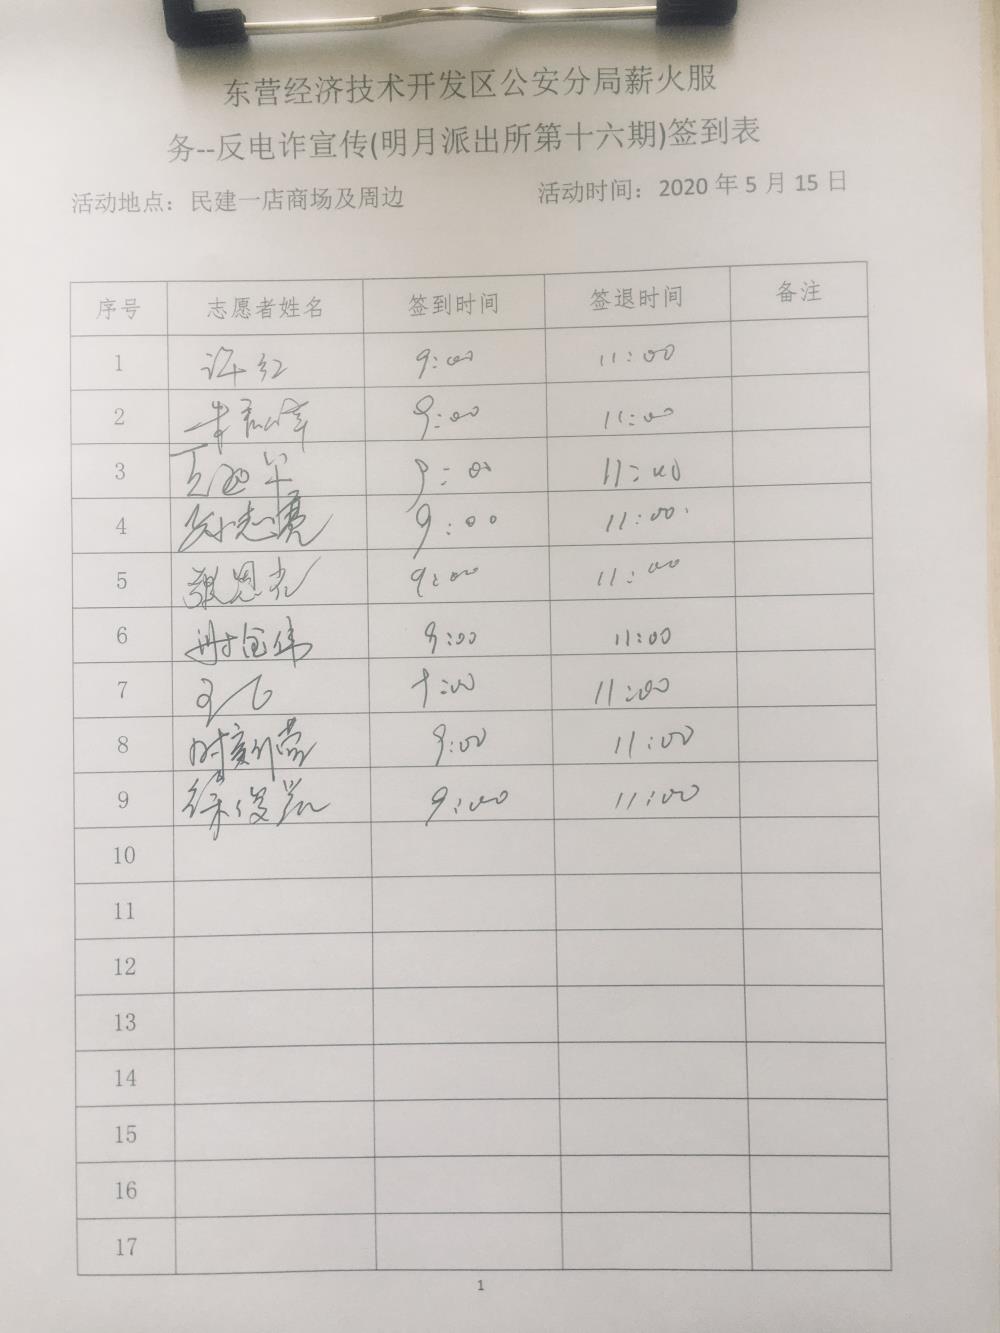 东营经济技术开发区公安分局薪火服
务--反电诈宣传(明月派出所第十六期)签到表
活动地点：民建一店商场及周边 活动时间：2020 年 5 月 15 日
序号 志愿者姓名 签到时间 签退时间 备注
1 许红 9:00 11:00
2 9:00 11:00
3 9:00 11:00
4 孙志亮 9:00 11:00.
5 张恩光 9:00 11:00
6 9:00 11:00
7 9:00 11:00
8 9:00 11:00
9 徐俊凯 9:00 11:00
10
11
12
13
14
15
16
17
1